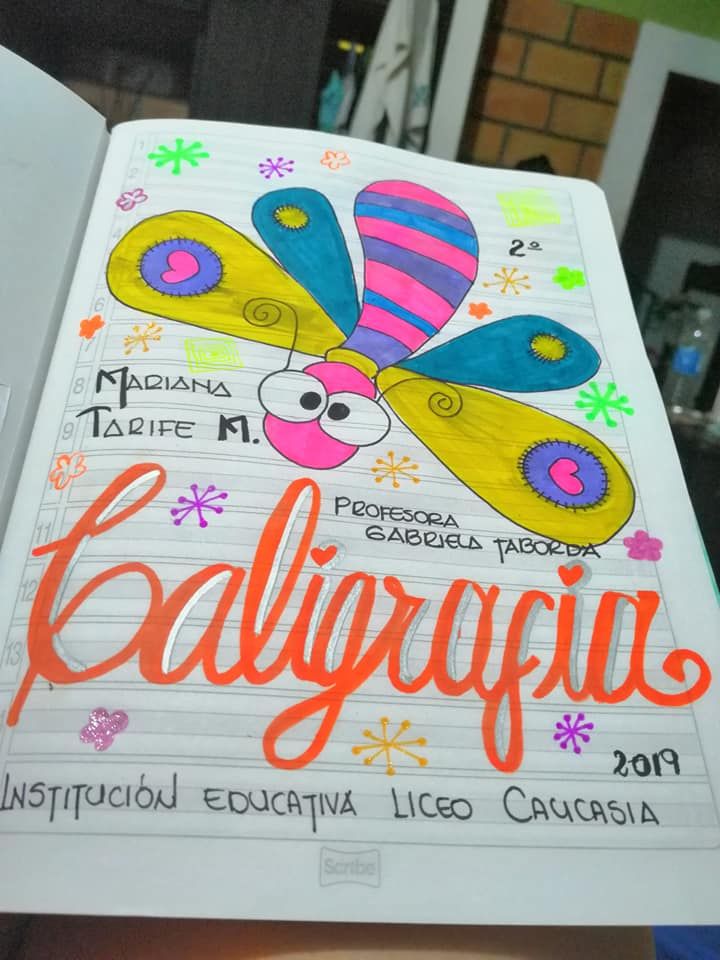 2º
MARIANA
TARIFE M.
PROFESORA
GABRIELA TABORDA
Caligrafia
2019
INSTITUCIÓN EDUCATIVA LICEO CAUCASIA
Scribe
1
2
4
6
7
8
9
11
12
13